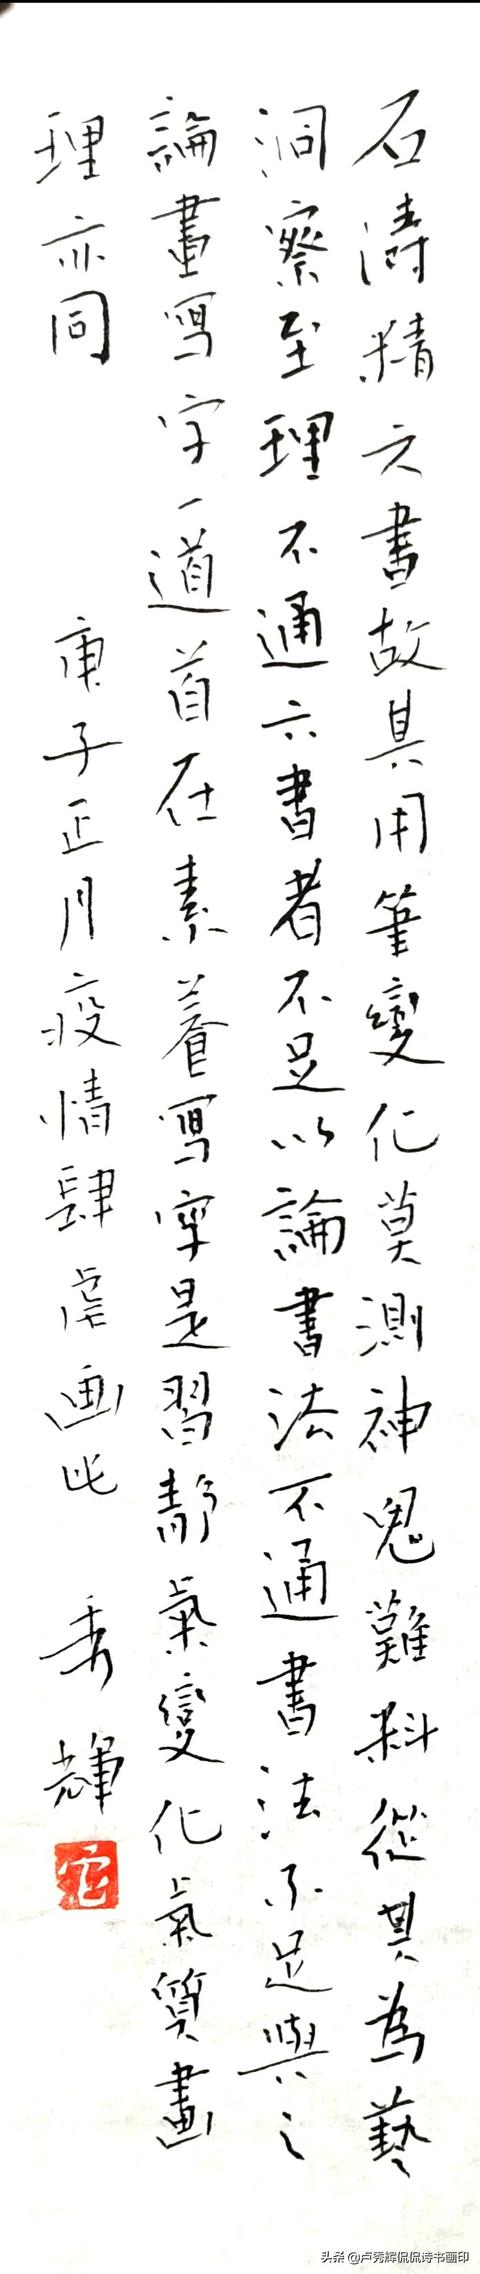 石濤精六書故其用筆變化莫測神鬼難料從其為藝
洞察至理不通六書者不足以論書法不通書法不足與之
論畫寫字一道首在素養寫字是習靜氣變化氣質畫
理亦同
庚子正月疫情肆虐画此 秀輝
头条 @卢秀辉侃侃诗书画印